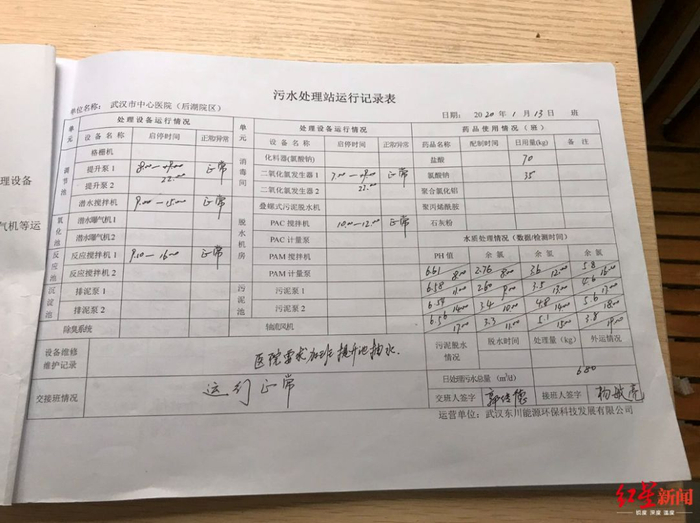 污水处理站运行记录表
单位名称： 武汉市中心医院（后湖院区） 日期： 2020年 1月 13日 班
单元 处理设备运行情况 单元 处理设备运行情况 药品使用情况（班）
设备名称 启停时间 正常/异常 设备名称 启停时间 正常/异常 药品名称 配制时间 日用量(kg) 备注
调节池 格栅机 消毒间 化料器(氯酸钠) 盐酸 70
提升泵 1 正常 二氧化氯发生器1 正常 氯酸钠 35
提升泵 2 22:00 二氧化氯发生器2 22:00 聚合氯化铝
潜水搅拌机 9:00-15:00 正常 脱水机房 叠螺式污泥脱水机 聚丙烯酰胺
氧化池 潜水曝气机1 PAC 搅拌机 10:00-12:00 正常 石灰粉
潜水曝气机2 PAC 计量泵 水质处理情况（数据/检测时间）
反应池 反应搅拌机1 9:10-16:00 正常 PAM 搅拌机 PH值 余氯 余氯 余氯
反应搅拌机2 PAM 计量泵 6.61 8:00 2.76 8:00 3.6 12:00 5.8 16:00
沉淀池 排泥泵 1 污泥池 污泥泵 1 6.58 11:00 2.60 9:00 3.5 13:00 4.6 17:00
排泥泵 2 污泥泵 2 6.59 14:00 3.4 10:00 4.8 14:00 5.6 18:00
除臭系统 轴流风机 6.56 17:00 3.3 11:00 5.1 15:00 3.8 19:00
设备维修维护记录 污泥脱水情况 脱水时间 处理量(kg) 外运情况
日处理污水总量（m³/d） 680
交接班情况 运行正常 交班人签字 接班人签字 杨敏亮
运营单位：武汉东川能源环保科技发展有限公司
理设备
气机等运
红星新闻
锐度 深度 温度